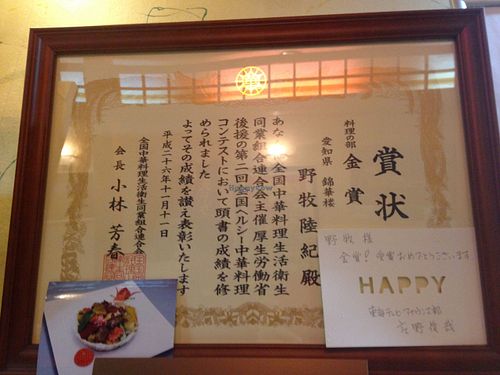 賞状
料理の部
金賞
愛知県 錦華楼
野牧陸紀殿
あな
全国中華料理生活衛生
同業組合連合会主催厚生労働省
後援の第二回全国ヘルシー中華料理
コンテストにおいて頭書の成績を修
められました
よってその成績を讃え表彰いたします
平成二十六年十一月十一日
全国中華料理生活衛生同業組合連合会
会長 小林芳春
野牧様
金賞!受賞おめでとうございます
HAPPY
東海テレビ